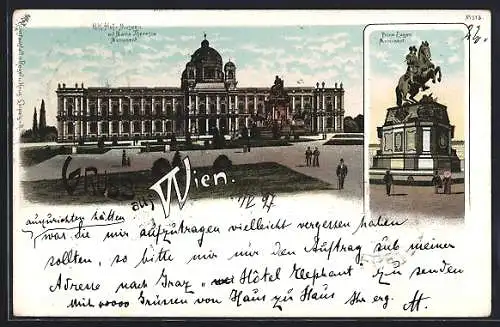 K.K. Hof-Museum
mit Maria Theresia
Monument.
Prinz Eugen
Monument.
Gruss aus Wien.
97
auszurichten hätten
was Sie mir aufzutragen vielleicht vergessen haben
sollten, so bitte mir nur den Auftrag sub meiner
Adresse nach Graz Hôtel Elephant zu senden
Mit 0000 Grüssen von Haus zu Haus Ihr erg.